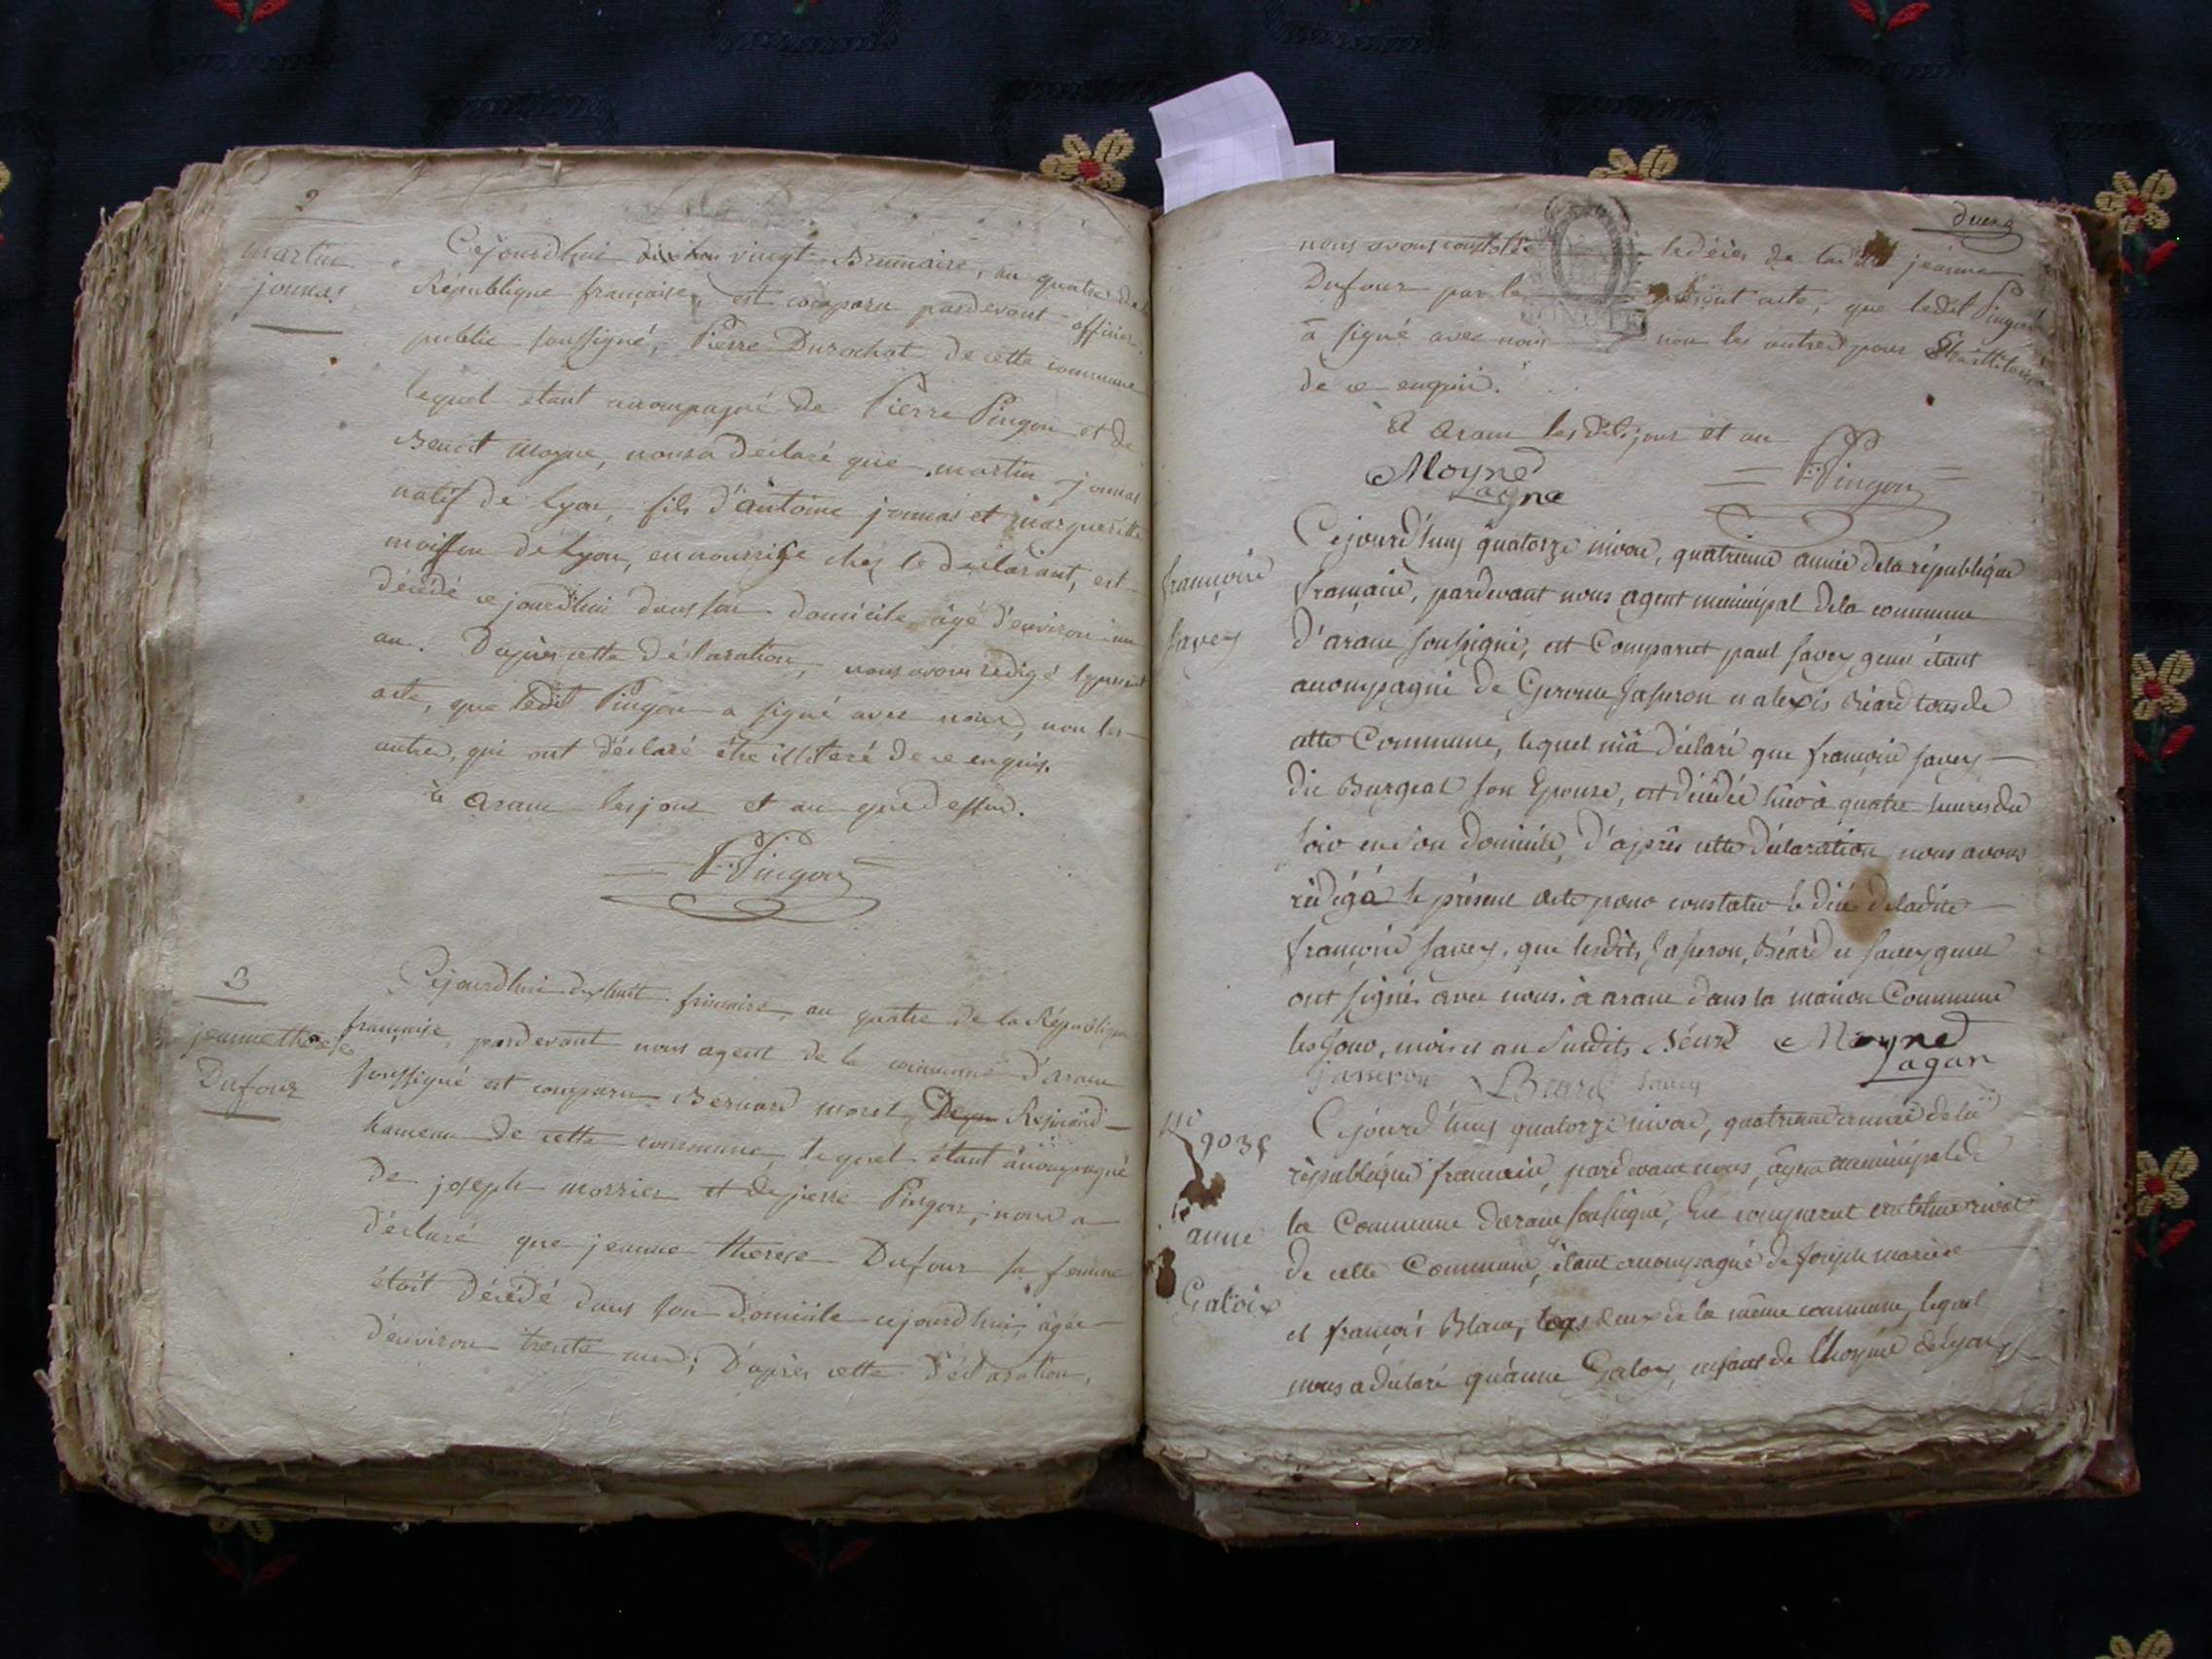 2
martin
jonnas
Cejourdhui vingt Brumaire, an quatre de la
République française, est comparu pardevant officier
public soussigné, Pierre Durochat de cette commune
lequel étant accompagné de Pierre Pingon et de
Benoit Moyne, nous a déclaré que martin jonnas
natif de Lyon, fils d'antoine jonnas et margueritte
de Lyon, en nourrice chez le déclarant, est
décédé cejourdhui dans son domicile, âgé d'environ un
an. D'après cette déclaration, nous avons rédigé le présent
acte, que ledit Pingon a signé avec nous, non les
autres, qui ont déclaré être illiteré de ce enquis.
à aranc les jour et an que dessus.
P. Pingon
3
jeanne therese
Dufour
Cejourdhui dixhuit frimaire, an quatre de la République
française, pardevant nous agent de la commune d'aranc
soussigné est comparu Bernard moret, de
hameau de cette commune, lequel étant accompagné
de joseph morrier et de pierre Pingon, nous a
déclaré que jeanne therese Dufour sa femme
étoit décédé dans son domicile cejourdhui, âgée
d'environ trente ans; D'après cette déclaration,
nous avons constaté le décès de ladite jeanne
Dufour par le présent acte, que ledit Pingon
a signé avec nous non les autres pour
de ce enquis.
à aranc lesdits jour et an
Moyne P. Pingon
Lagne
françoise
savey
Cejourd'huy quatorze nivose, quatrieme année de la république
française, pardevant nous agent municipal de la commune
d'aranc soussigné, est Comparut paul savey genet étant
accompagné de Gerome Jaseron et alexis Béard tous de
cette Commune, lequel m'a déclaré que françoise savey
dit Burgeat son Epouse, est décédée hier à quatre heures du
soir en son domicile, d'après cette déclaration nous avons
rédigé le présent acte pour constater le décè de ladite
françoise savey, que lesdits Jaseron, Béard et savey genet
ont signé avec nous. à aranc dans la maison Commune
les jour, mois et an susdits Béard Moyne
Jasseron LBeard savey Lagan
anne
Galoix
Cejourd'huy quatorze nivose, quatrieme année de la
république française, pardevant nous, agent municipal de
la Commune daranc soussigné, Est comparut rivat
de cette Commune, étant accompagné de Joseph mariere
et françois Blanc, tous deux de la même commune, lequel
nous a déclaré qu'anne Galoix, enfant de lhospice de Lyon